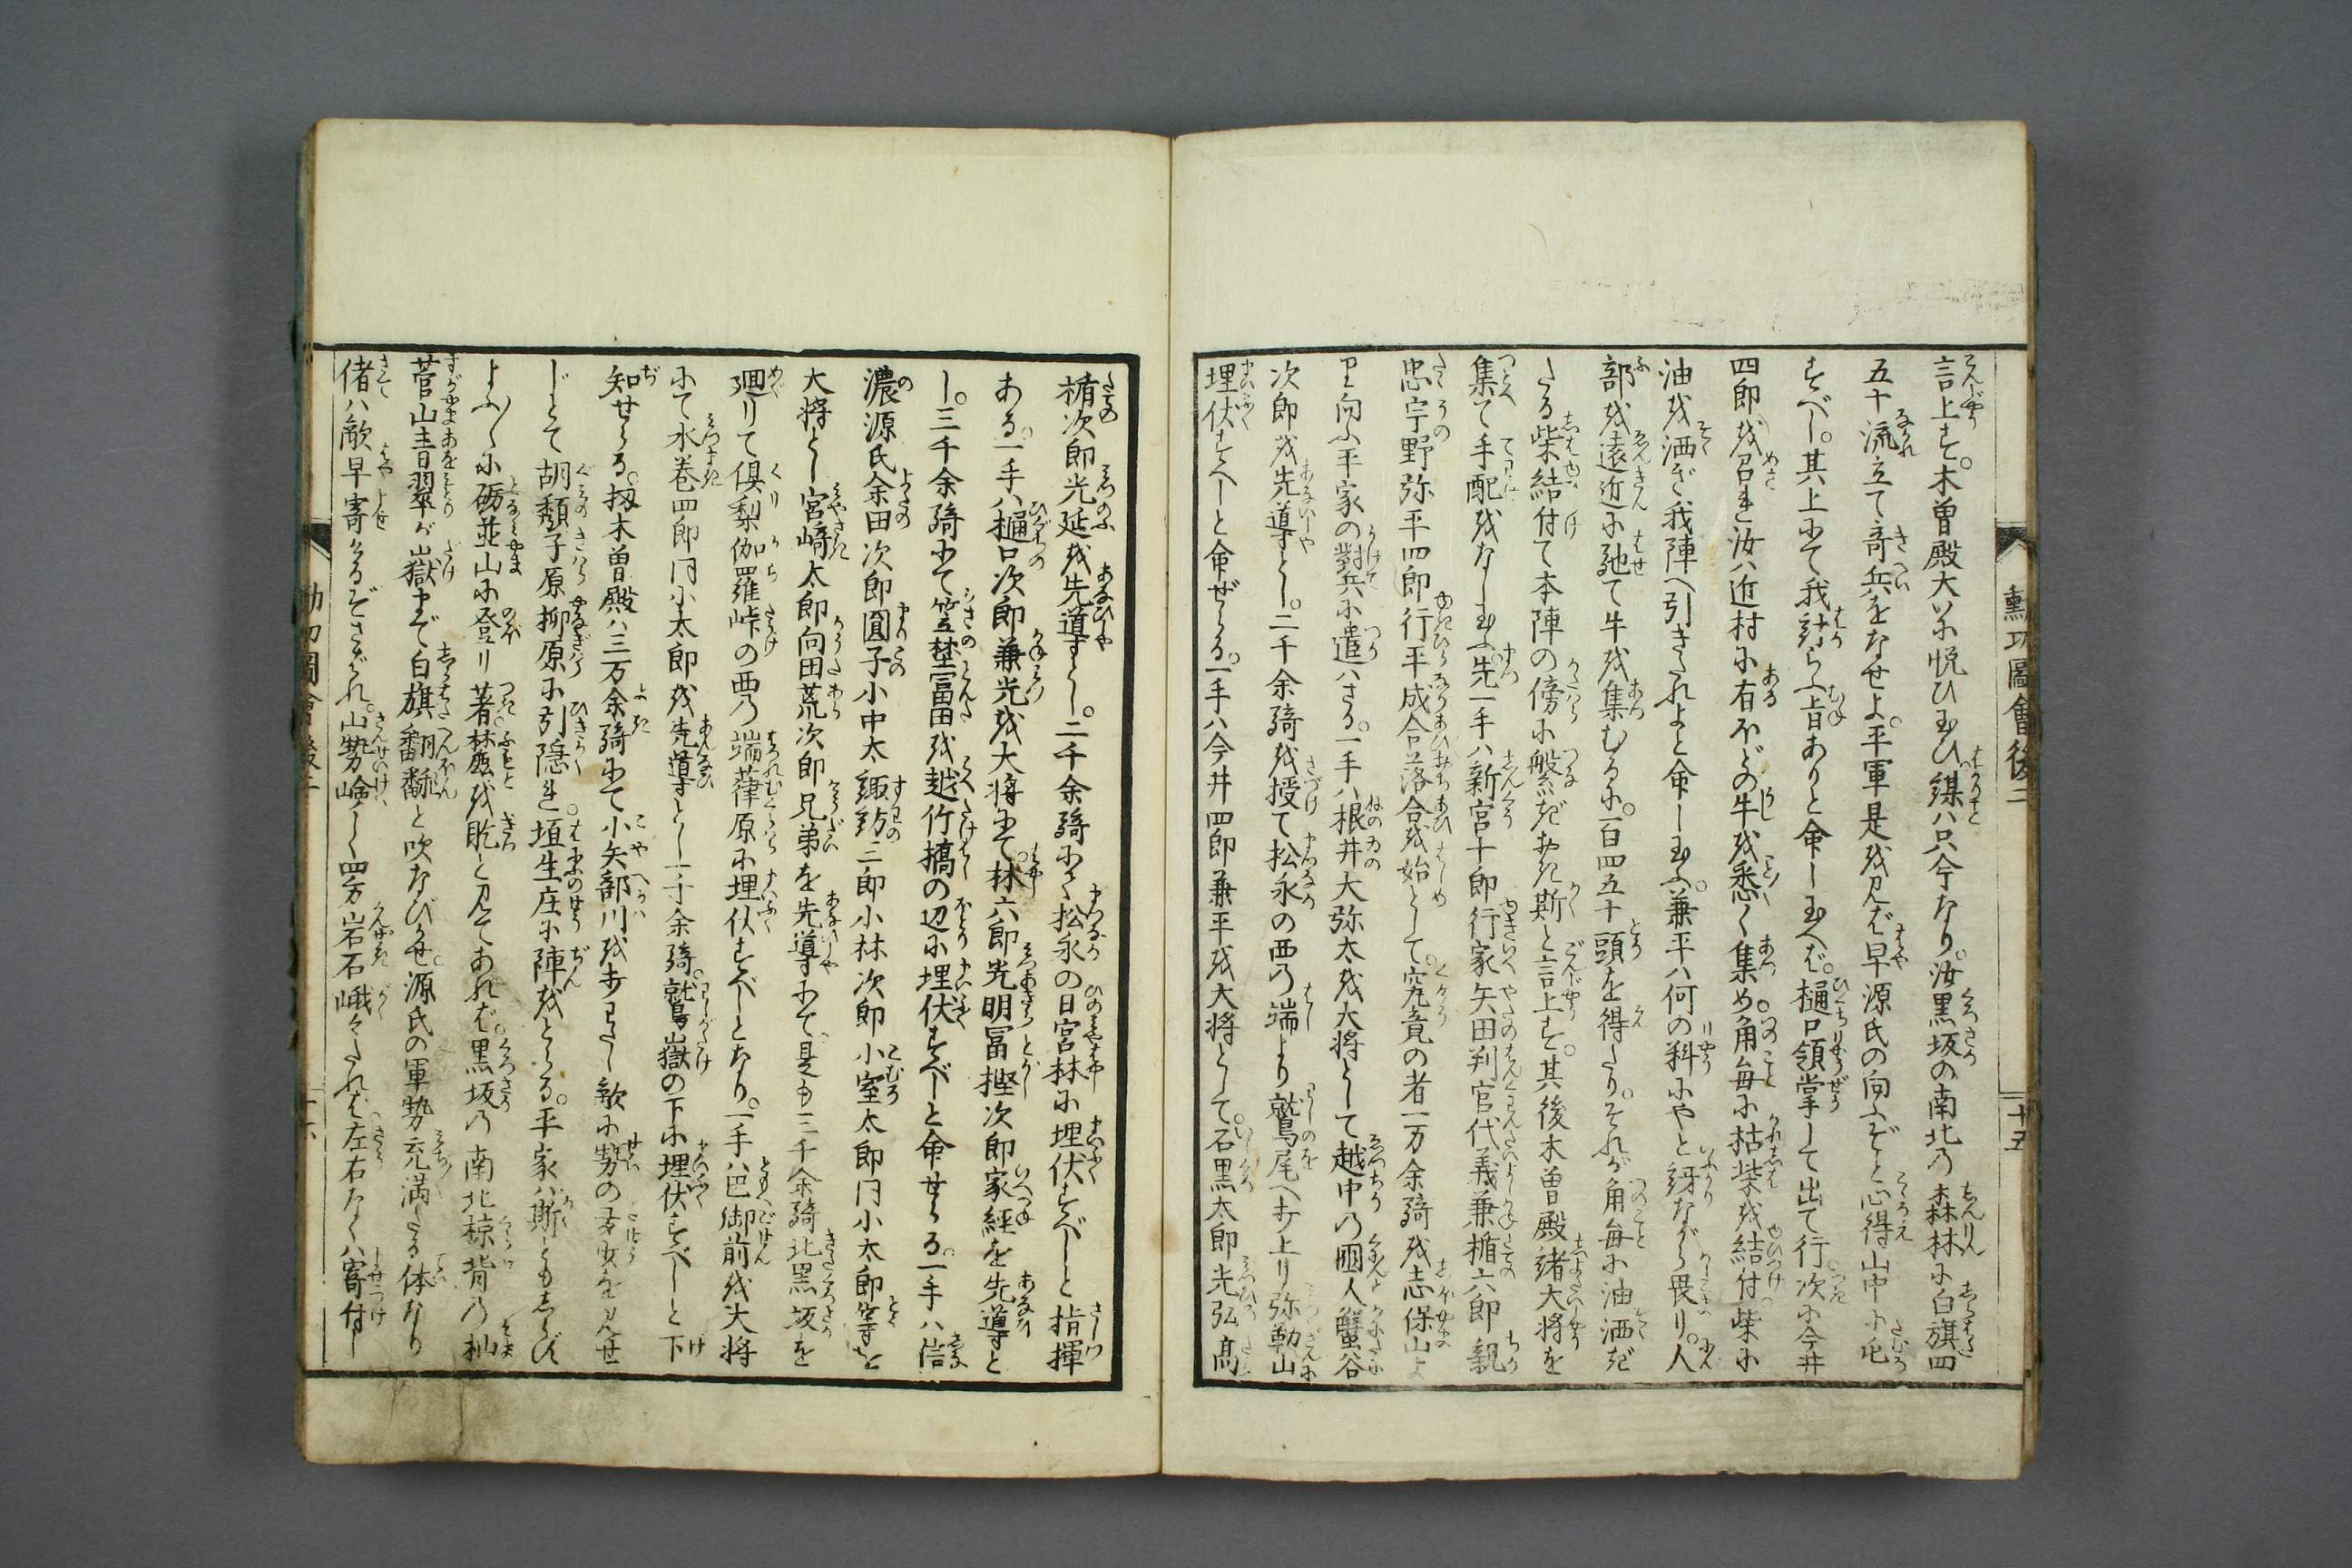 言上す。木曽殿大に悦び玉ひ謀は只今なり。汝黒坂の南北の森林に白旗四
五十流立て奇兵をなせよ。平軍是を見ば早源氏の向ふぞと心得山中に屯
すべし。其上にて我計らふ旨ありと命じ玉へば。樋口領掌して出て行。次に今井
四郎を召れ汝は近村に有ほどの牛を悉く集め。角毎に枯柴を結付。柴に
油を洒ぎ我陣へ引きたれよと命じ玉ふ。兼平ハ何の料にやと訝ながら畏り。人
部を遠近に馳て牛を集むるに。一百四五十頭を得たり。それが角毎に油洒ぎ
たる柴結付て本陣の傍に繋ぎおき斯と言上す。其後木曽殿諸大将を
集て手配をなし玉ふ。先一手ハ新宮十郎行家矢田判官代義兼楯六郎親
忠宇野弥平四郎行平成合落合を始として。究竟の者一万余騎を志保山よ
り向ふ平家の對兵に遣ハさる。一手ハ根井大弥太を大将として越中の國人蟹谷
次郎を先導とし。二千余騎を授て松永の西の端より鷲尾へ打上り弥勒山
埋伏すべしと命ぜらる。一手ハ今井四郎兼平を大将として。石黒太郎光弘高
楯次郎光延を先導とし。二千余騎にて松永の日宮林に埋伏すべしと指揮
ある。一手ハ樋口次郎兼光を大将にて。林六郎光明冨樫次郎家経を先導と
し。三千余騎にて笠埜冨田を越竹橋の辺に埋伏すべしと命ぜらる。一手ハ信
濃源氏余田次郎圓子小中太諏訪三郎小林次郎小室太郎同小太郎等を
大将とし宮﨑太郎向田荒次郎兄弟を先導にて。是も三千余騎北黒坂を
廻りて倶梨伽羅峠の西の端葎原に埋伏すべしとなり。一手ハ巴御前を大将
にて水巻四郎同小太郎を先導とし一千余騎。鷲嶽の下に埋伏すべしと下
知せらる。扨木曽殿ハ三万余騎にて小矢部川を打わたし敵に勢の多少を見せ
じとて胡頽子原柳原に引隠れ。埴生庄に陣をとらる。平家ハ斯ともしらず
よふ〳〵に砺並山に登り著。麓を屹と見てあれば。黒坂の南北椋背の杣
菅山主日翠が嶽まで白旗翻翻と吹なびかせ。源氏の軍勢充満たる体なり
偖ハ敵早寄たるぞさばれ。山勢嶮しく四方岩石峨々たれば。左右なくハ寄付じ
勲功圖會後二
十五